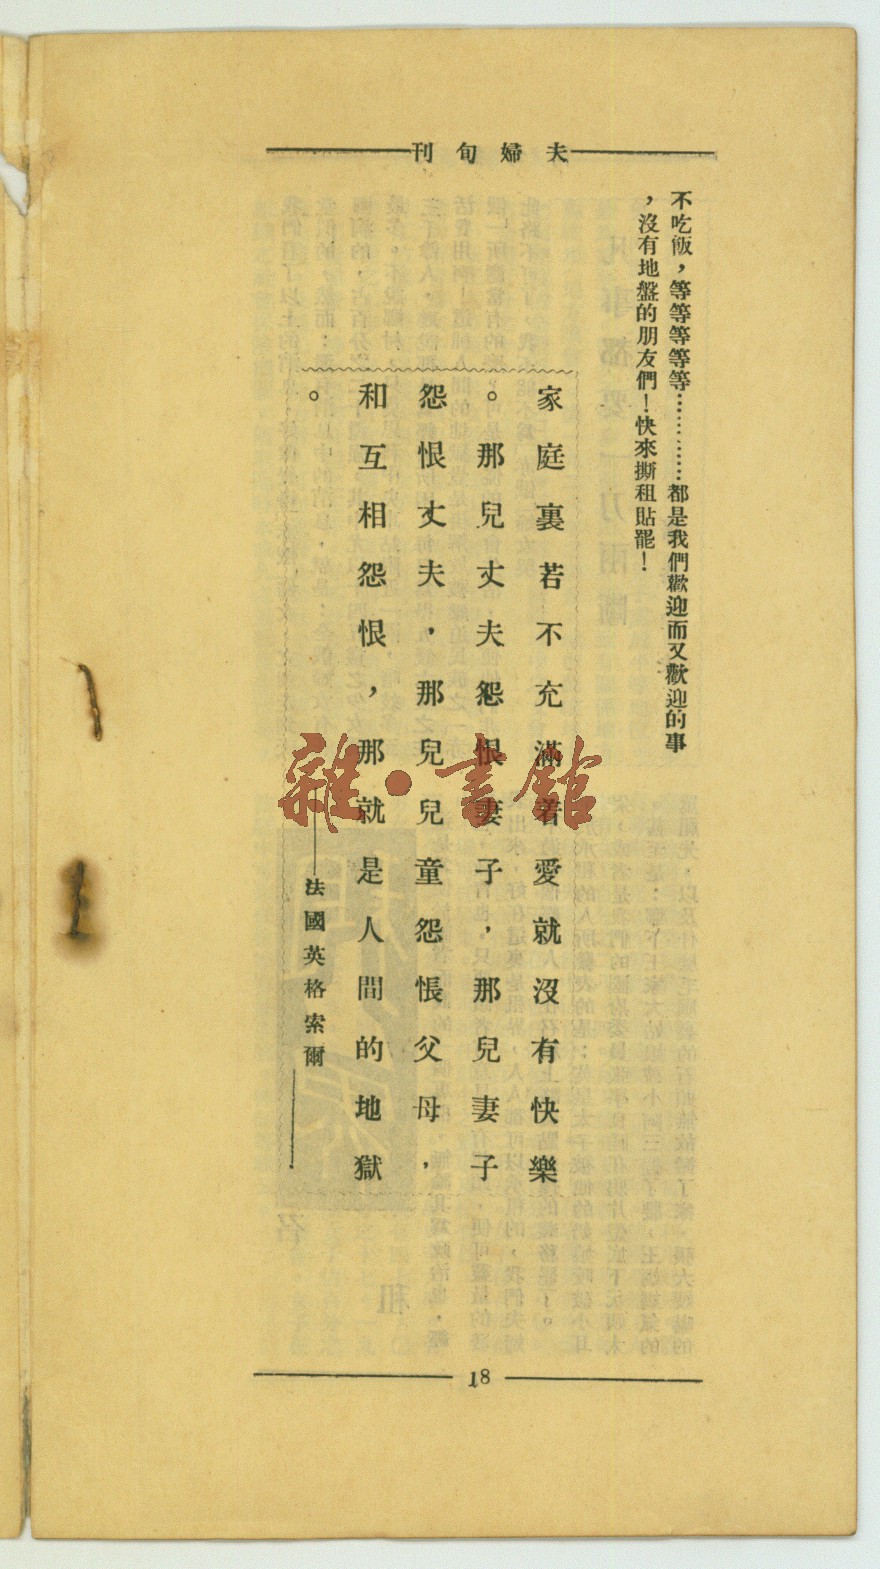 夫婦旬刊
不吃飯，等等等等等…………都是我們歡迎而又歡迎的事
，沒有地盤的朋友們！快來撕租貼罷！
家庭裏若不充滿着愛就沒有快樂
。那兒丈夫怨恨妻子，那兒妻子
怨恨丈夫，那兒兒童怨悵父母，
和互相怨恨，那就是人間的地獄
。
——法國英格索爾——
18
雜·書館